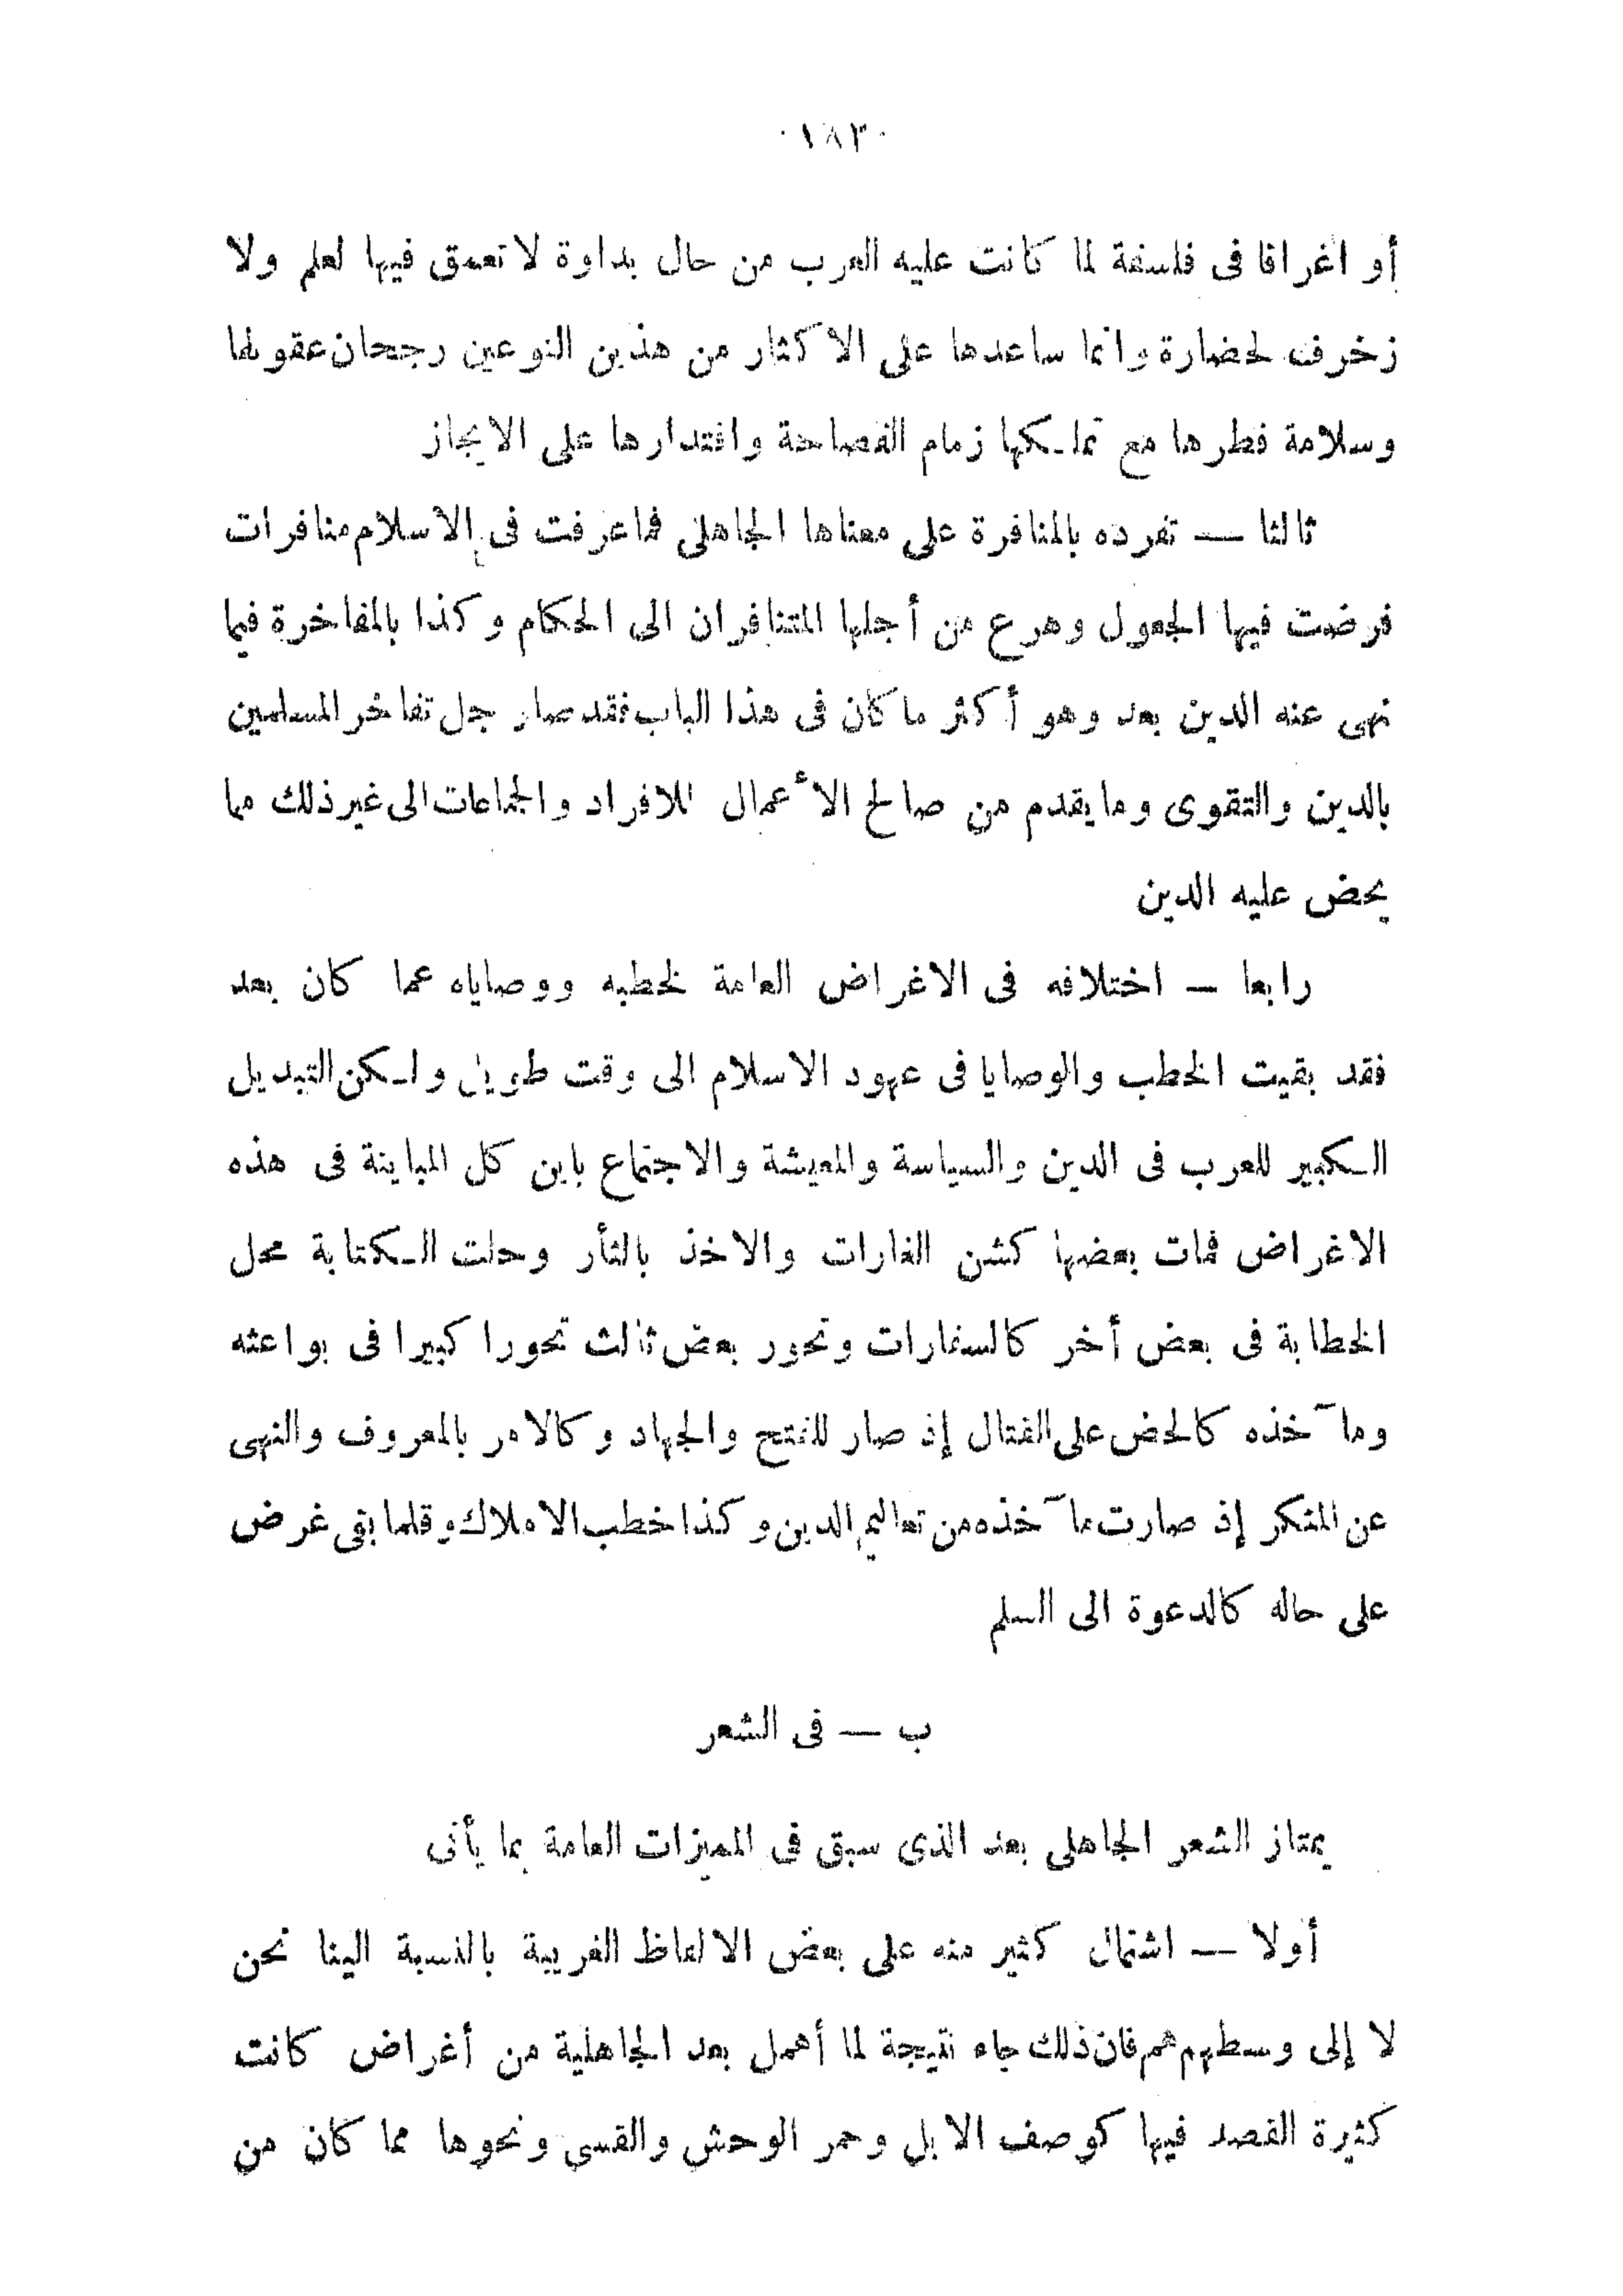 ١٨٣
أو اغراقا فى فلسفة لما كانت عليه العرب من حال بداوة لا تعمق فيها لعلم ولا
زخرف لحضارة وانما ساعدها على الاكثار من هذين النوعين رجحان عقولها
وسلامة فطرها مع تملكها زمام الفصاحة واقتدارها على الايجاز
ثالثا — تفرده بالمنافرة على معناها الجاهلى فما عرفت فى الاسلام منافرات
فرضت فيها الجعول وهرع من أجلها المتنافران الى الحكام وكذا بالمفاخرة فيما
نهى عنه الدين بعد وهو أكثر ما كان فى هذا الباب فقد صار جل تفاخر المسلمين
بالدين والتقوى وما يقدم من صالح الأعمال للافراد والجماعات الى غير ذلك مما
يحض عليه الدين
رابعا — اختلافه فى الاغراض العامة لخطبه ووصاياه عما كان بعد
فقد بقيت الخطب والوصايا فى عهود الاسلام الى وقت طويل ولكن التبديل
الكبير للعرب فى الدين والسياسة والمعيشة والاجتماع باين كل المباينة فى هذه
الاغراض فمات بعضها كشن الغارات والاخذ بالثأر وحلت الكتابة محل
الخطابة فى بعض أخر كالسفارات وتحور بعض ثالث تحورا كبيرا فى بواعثه
ومآخذه كالحض على القتال إذ صار للفتح والجهاد وكالامر بالمعروف والنهى
عن المنكر إذ صارت مآخذه من تعاليم الدين وكذا خطب الاملاك وقلما بقى غرض
على حاله كالدعوة الى السلم
ب — فى الشعر
يمتاز الشعر الجاهلى بعد الذى سبق فى المميزات العامة بما يأتى
أولا — اشتمال كثير منه على بعض الالفاظ الغريبة بالنسبة الينا نحن
لا إلى وسطهم هم فان ذلك جاء نتيجة لما أهمل بعد الجاهلية من أغراض كانت
كثيرة القصد فيها كوصف الابل وحمر الوحش والقسى ونحوها مما كان من